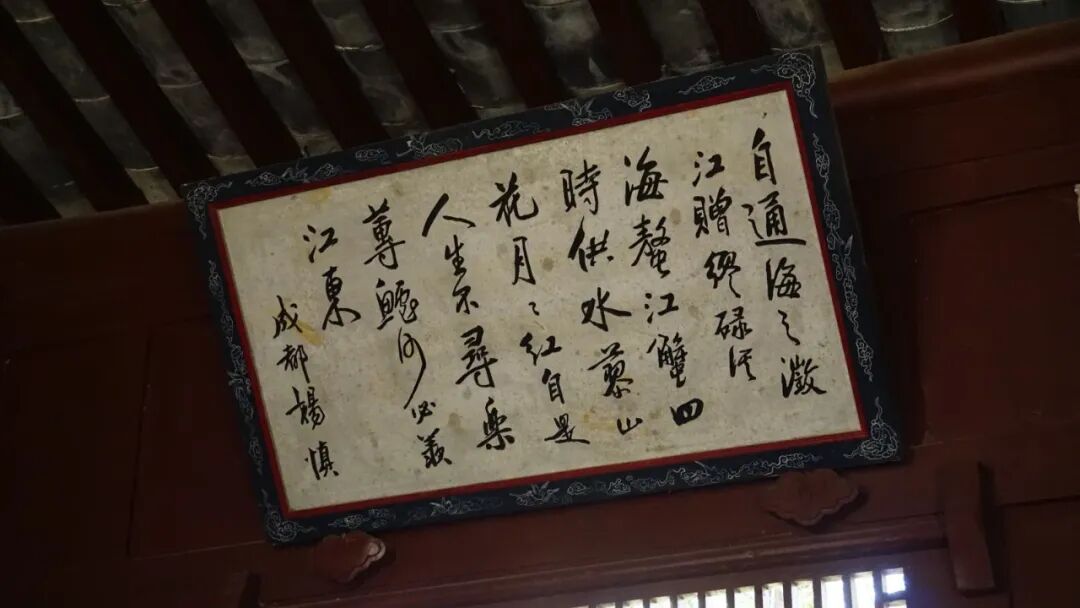 自通海之澂
江贈繆碌溪
海螯江蟹四
時供水蓼山
花月〻紅自是
人生不尋樂
蓴鱸何必羨
江東
成都楊慎